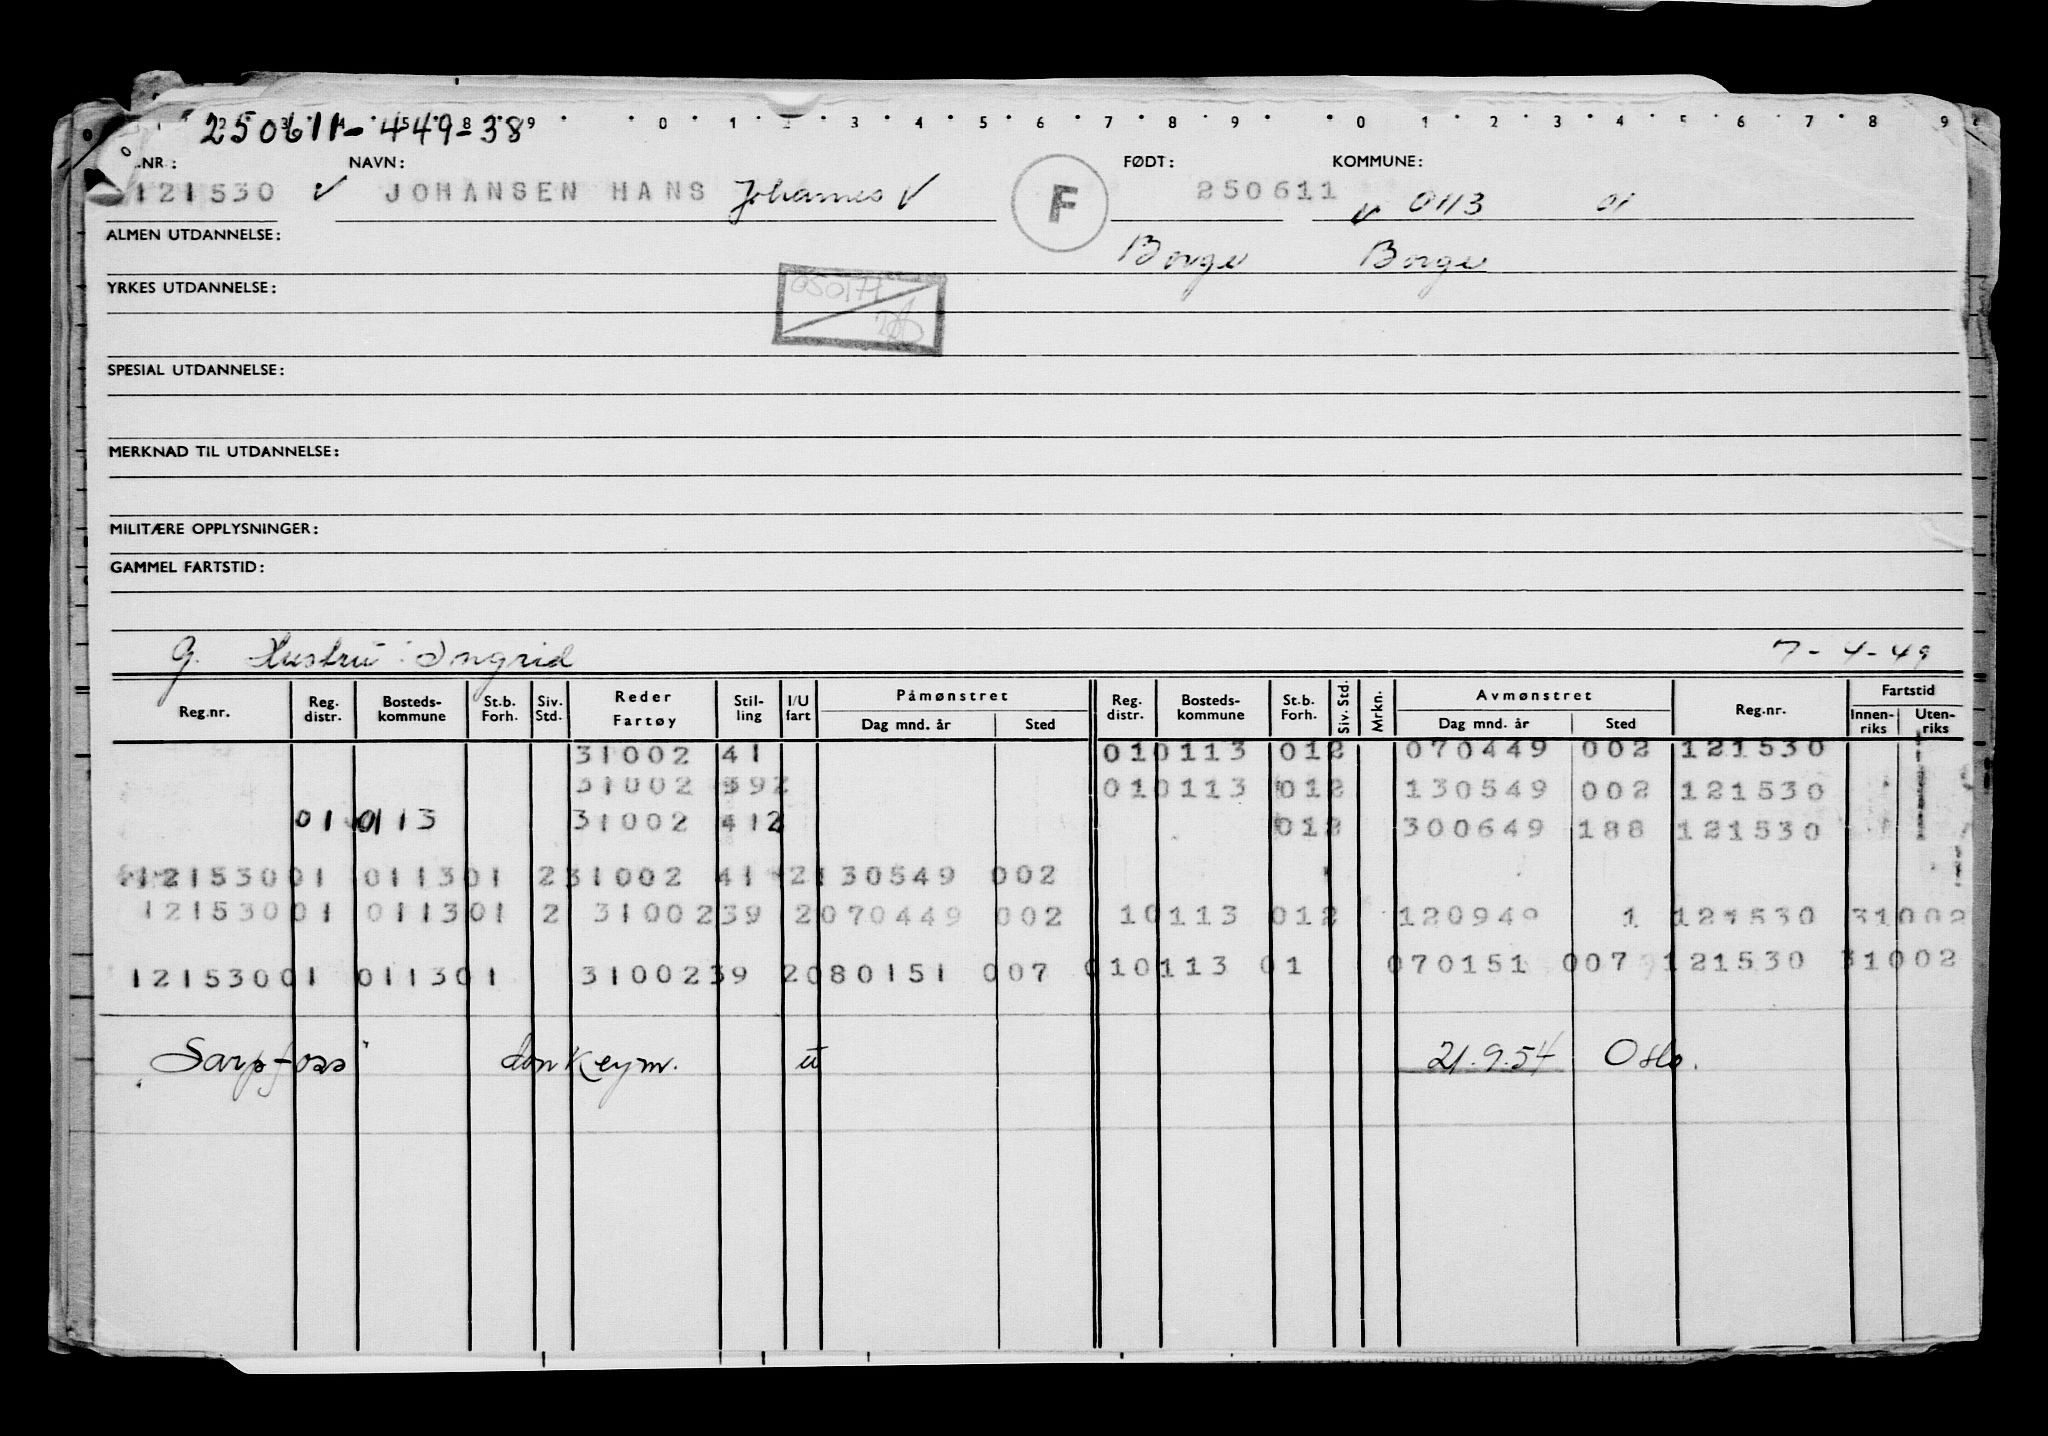 250611-449-38
0 1 2 3 4 5 6 7 8 9 0 1 2 3 4 5 6 7 8 9
NR: NAVN: FØDT: KOMMUNE:
121530 V JOHANSEN HANS Johannes V F 250611 V 0113 01
ALMEN UTDANNELSE: Borge Borge
YRKES UTDANNELSE: 050171
SPESIAL UTDANNELSE:
MERKNAD TIL UTDANNELSE:
MILITÆRE OPPLYSNINGER:
GAMMEL FARTSTID:
G. Hustru: Ingrid 7-4-49
Reg.nr. Reg. distr. Bosteds-kommune St.b. Forh. Siv. Std. Reder Fartøy Stil-ling I/U fart Påmønstret Dag mnd. år Sted Reg. distr. Bosteds-kommune St.b. Forh. Siv. Std. Mrkn. Avmønstret Dag mnd. år Sted Reg.nr. Fartstid Innen-riks Uten-riks
31002 41 010113 012 070449 002 121530
31002 392 010113 012 130549 002 121530
01 0113 31002 412 012 300649 188 121530
12153001 011301 231002 41 2130549 002
12153001 011301 2 3100239 2070449 002 10113 012 120949 1 121530 31002
12153001 011301 3100239 2080151 007 010113 01 070151 007 121530 31002
"Sarpfoss" donkeym. u 21.9.54 Oslo.